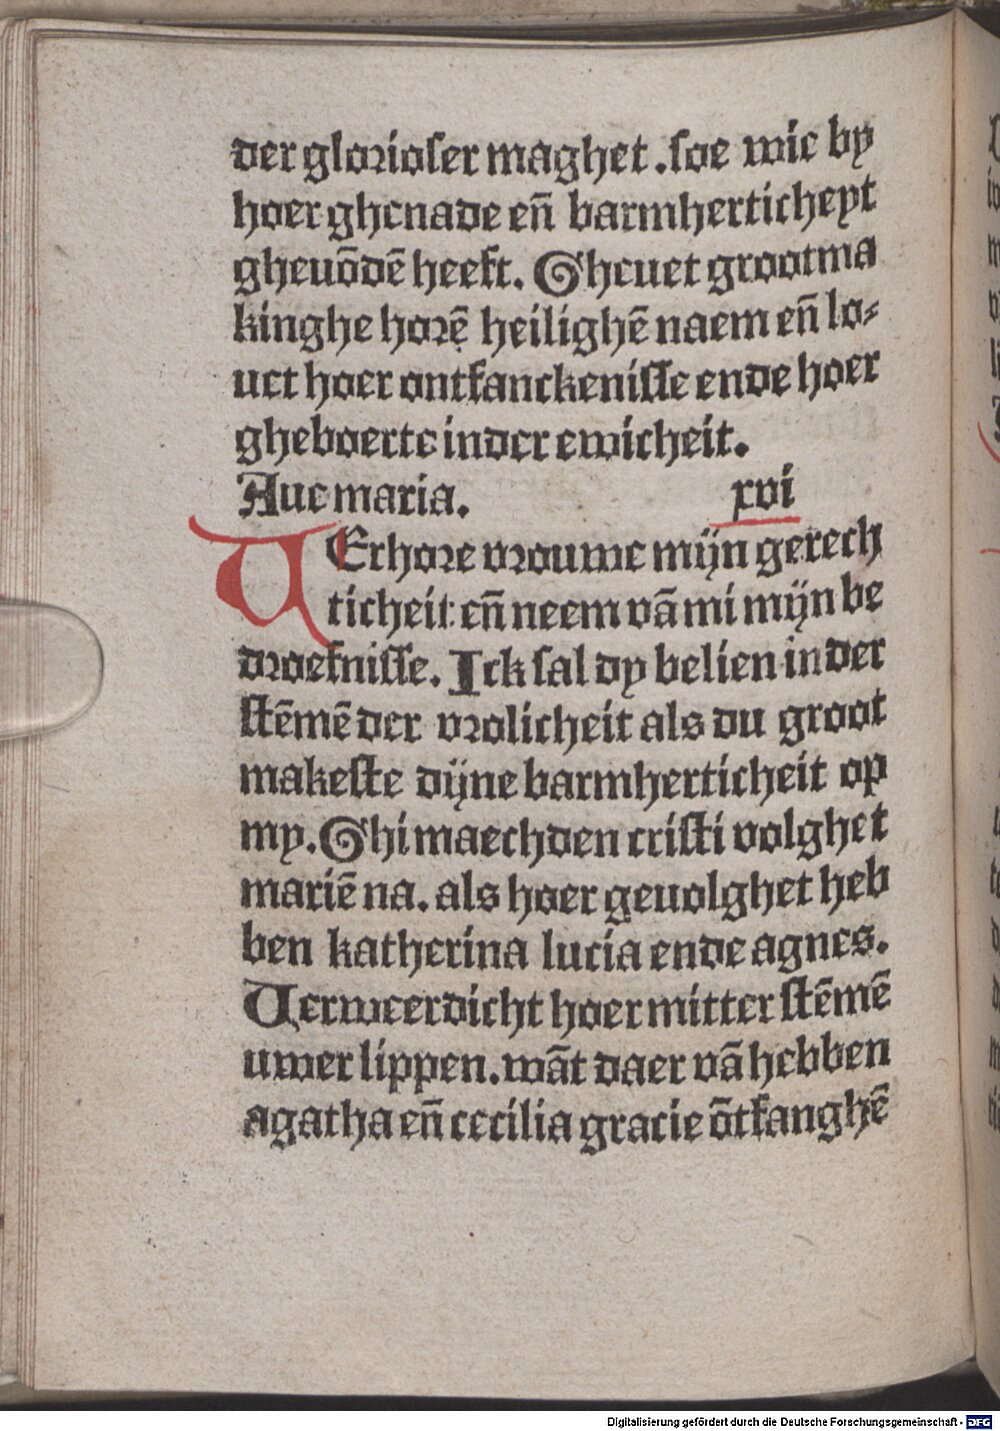 der glorioſer maghet. ſoe wie by
hoer ghenade en̄ barmherticheyt
gheuōdē heeft. Gheuet grootma
kinghe horē heilighē naem en̄ lo⸗
uet hoer ontfanckeniſſe ende hoer
gheboerte in der ewicheit.
Aue maria. xvi
VErhore vrouwe mijn gerech
ticheit en̄ neem vā mi mijn be
droefniſſe. Ick ſal dy belien in der
ſtēmē der vrolicheit als du groot
makeſte dijne barmherticheit op
my. Ghi maechden criſti volghet
mariē na. als hoer geuolghet heb
ben katherina lucia ende agnes.
Uerweerdicht hoer mitter ſtēmē
uwer lippen. wāt daer vā hebben
agatha en̄ cecilia gracie ōtfanghē
Digitalisierung gefördert durch die Deutsche Forschungsgemeinschaft - DFG